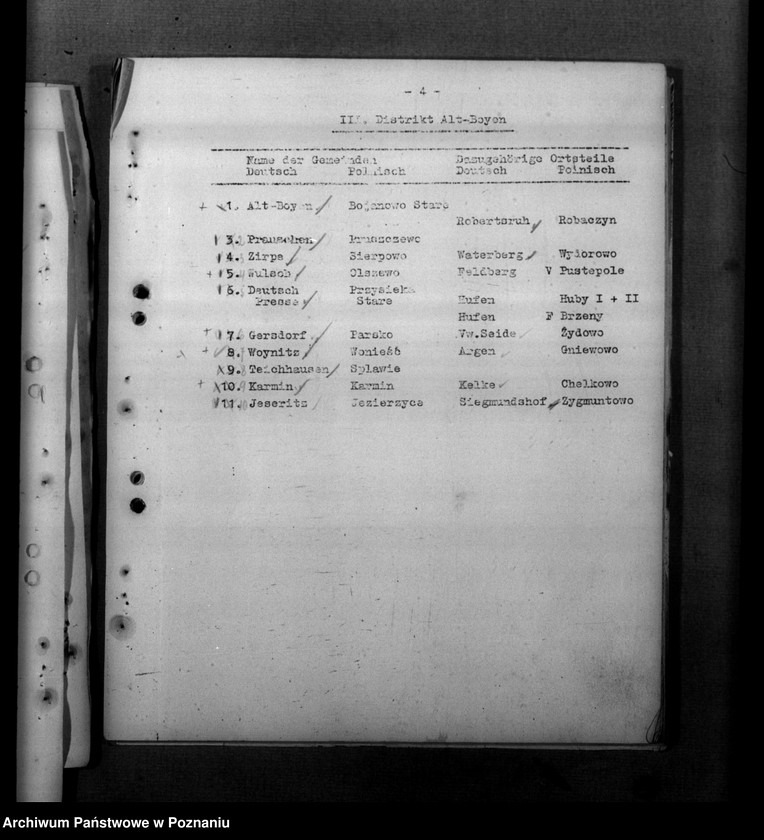 - 4 -
III. Distrikt Alt-Boyen
Name der Gemeinden Dazugehörige Ortsteile
Deutsch Polnisch Deutsch Polnisch
+ 1. Alt-Boyen Bojanowo Stare
Robertsruh Robaczyn
3. Prauschen Kruszczewo
4. Zirpe Sierpowo Waterberg Wydorowo
+ 5. Wulsch Olszewo Feldberg V Pustepole
6. Deutsch Przysieka
Presse Stare Hufen Huby I + II
Hufen F Brzeny
+ 7. Gersdorf Parsko Vw.Seide Żydowo
+ 8. Woynitz Wonieść Argen Gniewowo
9. Teichhausen Spławie
+ 10. Karmin Karmin Kelke Chełkowo
11. Jeseritz Jezierzyce Siegmundshof Zygmuntowo
Archiwum Państwowe w Poznaniu